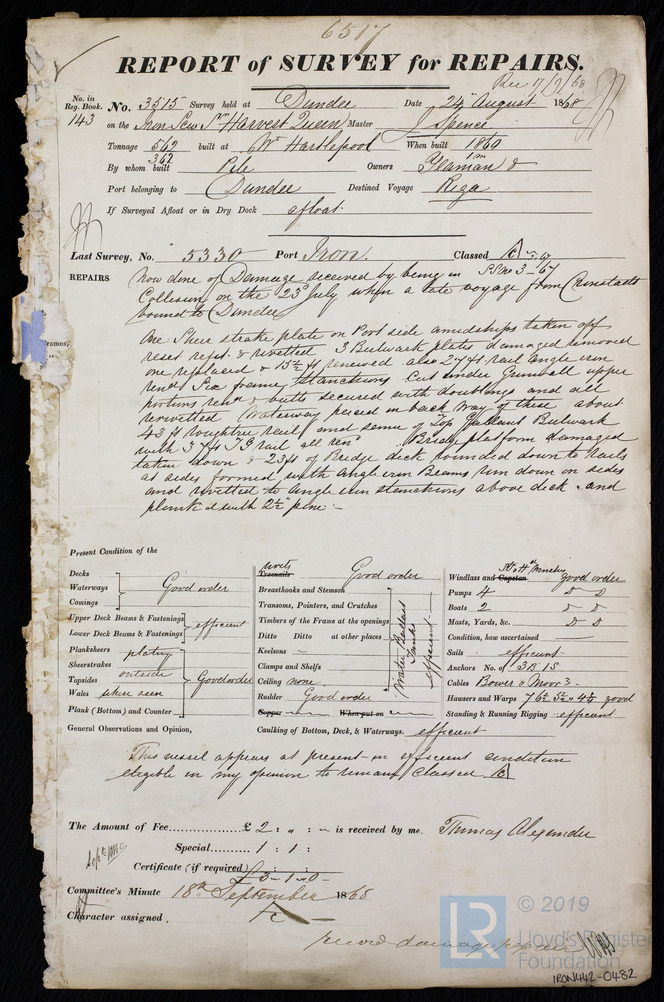 6517
REPORT of SURVEY for REPAIRS.
Rec 17/9/68
No. in Reg. Book. No. 3515 Survey held at Dundee Date 24th August 1868
143 on the Iron Scw Str Harvest Queen Master J Spence
Tonnage 562 built at W. Hartlepool When built 1860
362 1m
By whom built Pile Owners Flaman &
Port belonging to Dundee Destined Voyage Riga
If Surveyed Afloat or in Dry Dock afloat
Last Survey, No. 5330 Port Iron. Classed A
SS No 3-67
REPAIRS Now done of Damage received by being in
Collision on the 23d July when a late voyage from Cronstadt
bound to Dundee
One Sheer strake plate on Port side amidships taken off
reset refit & rivetted 3 Bulwark plates damaged removed
one replaced & 15½ ft renewed also 27 ft rail angle iron
rend Six frame stanchions cut under Gunwall upper
portions rend & butts secured with doublings and all
rerivetted Waterway pieced in back way of these about
43 ft roughtree rail and some of Top Gallant Bulwark
with 37 ft TG rail all rend Bridge platform damaged
taken down & 23 ft of Bridge deck rounded down to rails
at sides formed with angle iron Beams run down on sides
and rivetted to angle iron stanchions above deck and
plank d with 2½" pine -
Present Condition of the
Decks
Waterways Good order
Comings
Upper Deck Beams & Fastenings efficient
Lower Deck Beams & Fastenings
Planksheers plating
Sheerstrakes
Topsides outside Good order
Wales when seen
Plank (Bottom) and Counter
rivets
Treenails Good order
Breasthooks and Stemson
Transoms, Pointers, and Crutches
Timbers of the Frame at the openings
Ditto Ditto at other places
Keelsons
Clamps and Shelfs
Water Ballast Tanks efficient
Ceiling none
Rudder Good order
Copper When put on
Windlass and Capstan good order
Pumps 4 D D
Boats 2 D D
Masts, Yards, &c. D D
Condition, how ascertained
Sails efficient
Anchors No. of 3B 1S
Cables Bower & Moor 3
Hawsers and Warps 7 6½ 5½ & 4½ good
Standing & Running Rigging efficient
General Observations and Opinion, Caulking of Bottom, Deck, & Waterways. efficient
This vessel appears at present in efficient condition
eligible in my opinion to remain Classed A
The Amount of Fee £ 2 : " : - is received by me, Thomas Alexander
Special 1 : 1 :
Certificate (if required) £3-1-0
Committee's Minute 18th September 1868
Character assigned
record damage repairs
LR © 2019
Lloyd's Register
Foundation
IRON442-0482